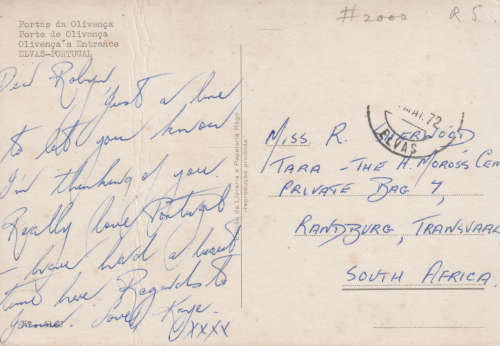 #2000 R5
Portas da Olivença
Porte de Olivença
Olivença's Entrance
ELVAS-PORTUGAL
Dear Robyn
Just a line
to let you know
I'm thinking of you.
Really love Portugal
- have had a beaut
time here. Regards to
Love Kaye
xxxx
MAI. 72
ELVAS
MISS R. ERWOOD
TARA - THE H. MOROSS CEN
PRIVATE BAG 7,
RANDBURG, TRANSVAAL
SOUTH AFRICA.